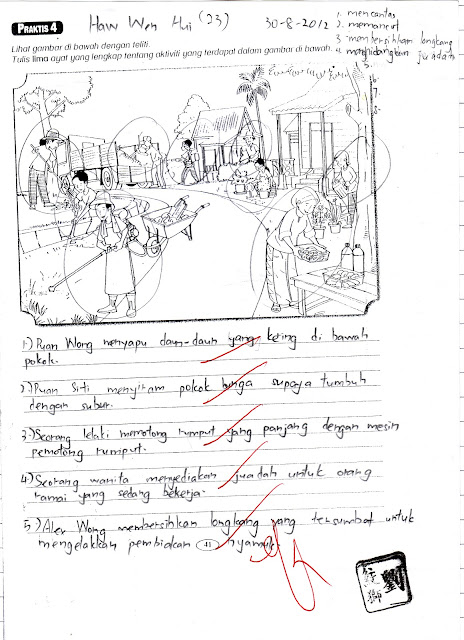 PRAKTIS 4 Haw Wen Hui (23) 30-8-2012
1. mencantas
2. memancut
3. membersihkan longkang
4. menghidangkan juadah
5.
6.
7.
8.
Lihat gambar di bawah dengan teliti.
Tulis lima ayat yang lengkap tentang aktiviti yang terdapat dalam gambar di bawah.
1) Puan Wong menyapu daun-daun yang kering di bawah
pokok.
2) Puan Siti menyiram pokok bunga supaya tumbuh
dengan subur.
3) Seorang lelaki memotong rumput yang panjang dengan mesin
pemotong rumput.
4) Seorang wanita menyediakan juadah untuk orang
ramai yang sedang bekerja.
5) Alex Wong membersihkan longkang yang tersumbat untuk
mengelakkan pembiakan nyamuk.
41